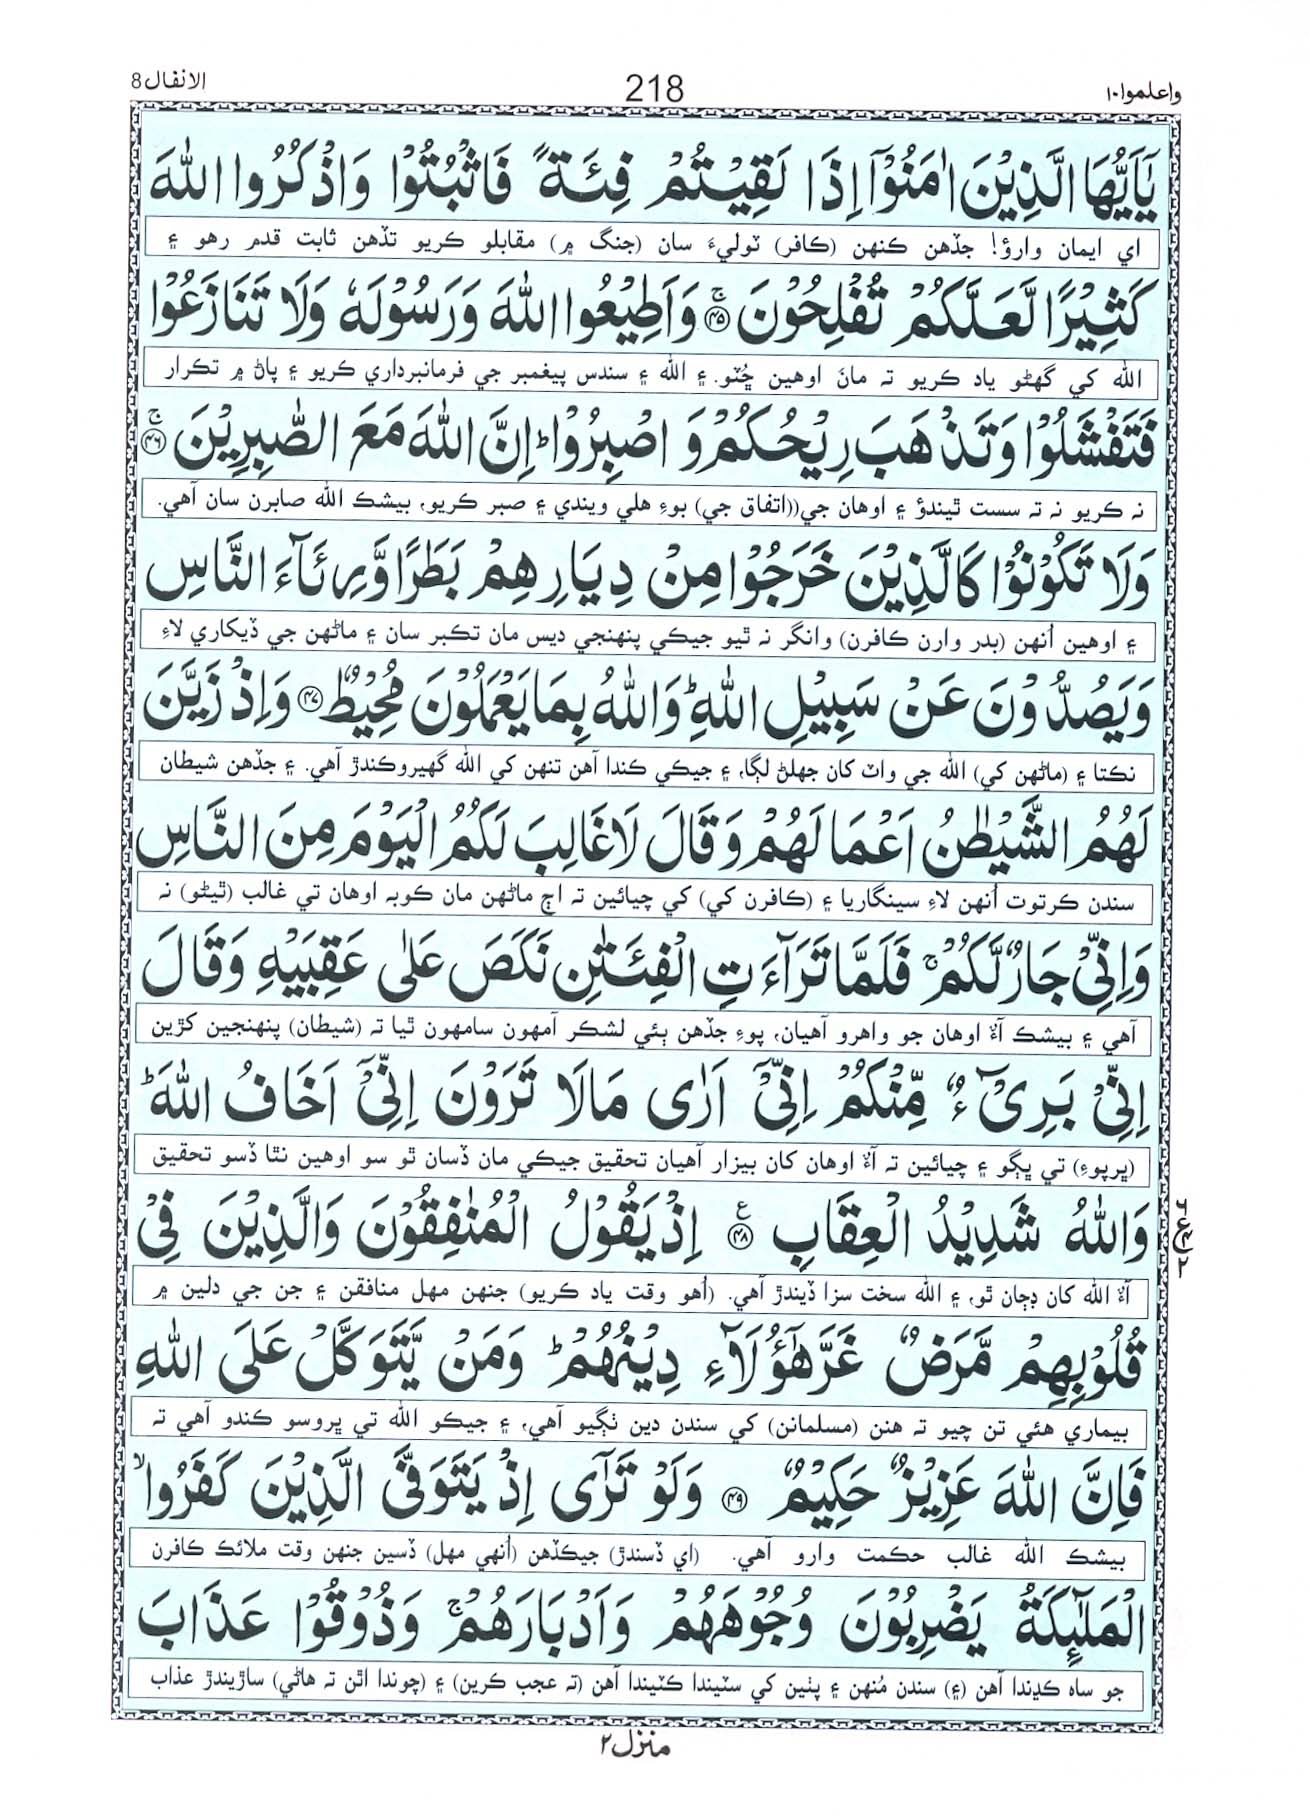 واعلموا١٠ 218 الانفال8
يٰۤاَيُّهَا الَّذِيْنَ اٰمَنُوْۤا اِذَا لَقِيْتُمْ فِئَةً فَاثْبُتُوْا وَاذْكُرُوا اللّٰهَ
اي ايمان وارؤ! جڏهن ڪنهن (ڪافر) ٽوليءَ سان (جنگ ۾) مقابلو ڪريو تڏهن ثابت قدم رهو ۽
كَثِيْرًا لَّعَلَّكُمْ تُفْلِحُوْنَ ۚ﴿۴۵﴾ وَاَطِيْعُوا اللّٰهَ وَرَسُوْلَهٗ وَلَا تَنَازَعُوْا
الله کي گھڻو ياد ڪريو ته مانَ اوهين ڇُٽو. ۽ الله ۽ سندس پيغمبر جي فرمانبرداري ڪريو ۽ پاڻ ۾ تڪرار
فَتَفْشَلُوْا وَتَذْهَبَ رِيْحُكُمْ وَ اصْبِرُوْا ؕ اِنَّ اللّٰهَ مَعَ الصّٰبِرِيْنَ ۚ﴿۴۶﴾
نہ ڪريو نہ تہ سست ٿيندؤ ۽ اوهان جي((اتفاق جي) بوءِ هلي ويندي ۽ صبر ڪريو، بيشڪ الله صابرن سان آهي.
وَلَا تَكُوْنُوْا كَالَّذِيْنَ خَرَجُوْا مِنْ دِيَارِهِمْ بَطَرًا وَّرِئَآءَ النَّاسِ
۽ اوهين اُنهن (بدر وارن ڪافرن) وانگر نہ ٿيو جيڪي پنهنجي ديس مان تڪبر سان ۽ ماڻهن جي ڏيکاري لاءِ
وَيَصُدُّوْنَ عَنْ سَبِيْلِ اللّٰهِ ؕ وَاللّٰهُ بِمَا يَعْمَلُوْنَ مُحِيْطٌ ﴿۴۷﴾ وَاِذْ زَيَّنَ
نڪتا ۽ (ماڻهن کي) الله جي واٽ کان جهلڻ لڳا، ۽ جيڪي ڪندا آهن تنهن کي الله گهيروڪندڙ آهي. ۽ جڏهن شيطان
لَهُمُ الشَّيْطٰنُ اَعْمَالَهُمْ وَقَالَ لَا غَالِبَ لَكُمُ الْيَوْمَ مِنَ النَّاسِ
سندن ڪرتوت اُنهن لاءِ سينگاريا ۽ (ڪافرن کي) کي چيائين تہ اڄ ماڻهن مان ڪوبہ اوهان تي غالب (ٿيڻو) نہ
وَاِنِّيْ جَارٌ لَّكُمْ ۚ فَلَمَّا تَرَآءَتِ الْفِئَتٰنِ نَكَصَ عَلٰى عَقِبَيْهِ وَقَالَ
آهي ۽ بيشڪ آءٌ اوهان جو واهرو آهيان، پوءِ جڏهن ٻئي لشڪر آمهون سامهون ٿيا تہ (شيطان) پنهنجين کڙين
اِنِّيْ بَرِيْٓءٌ مِّنْكُمْ اِنِّيْۤ اَرٰى مَا لَا تَرَوْنَ اِنِّيْۤ اَخَافُ اللّٰهَ ؕ
(پرپوءِ) تي ڀڳو ۽ چيائين تہ آءٌ اوهان کان بيزار آهيان تحقيق جيڪي مان ڏسان ٿو سو اوهين نٿا ڏسو تحقيق
وَاللّٰهُ شَدِيْدُ الْعِقَابِ ﴿۴۸﴾ ع اِذْ يَقُوْلُ الْمُنٰفِقُوْنَ وَالَّذِيْنَ فِيْ
آءٌ الله کان ڊڄان ٿو، ۽ الله سخت سزا ڏيندڙ آهي. (اُهو وقت ياد ڪريو) جنهن مهل منافقن ۽ جن جي دلين ۾
قُلُوْبِهِمْ مَّرَضٌ غَرَّ هٰۤؤُلَآءِ دِيْنُهُمْ ؕ وَمَنْ يَّتَوَكَّلْ عَلَى اللّٰهِ
بيماري هئي تن چيو تہ هنن (مسلمانن) کي سندن دين ٺڳيو آهي، ۽ جيڪو الله تي ڀروسو ڪندو آهي تہ
فَاِنَّ اللّٰهَ عَزِيْزٌ حَكِيْمٌ ﴿۴۹﴾ وَلَوْ تَرٰۤى اِذْ يَتَوَفَّى الَّذِيْنَ كَفَرُوا ۙ
بيشڪ الله غالب حڪمت وارو آهي. (اي ڏسندڙ) جيڪڏهن (اُنهي مهل) ڏسين جنهن وقت ملائڪ ڪافرن
الْمَلٰٓئِكَةُ يَضْرِبُوْنَ وُجُوْهَهُمْ وَاَدْبَارَهُمْ ۚ وَذُوْقُوْا عَذَابَ
جو ساه ڪڍندا آهن (۽) سندن مُنهن ۽ پٺين کي سٽيندا ڪٽيندا آهن (تہ عجب ڪرين) ۽ (چوندا اٿن تہ هاڻي) ساڙيندڙ عذاب
منزل٢